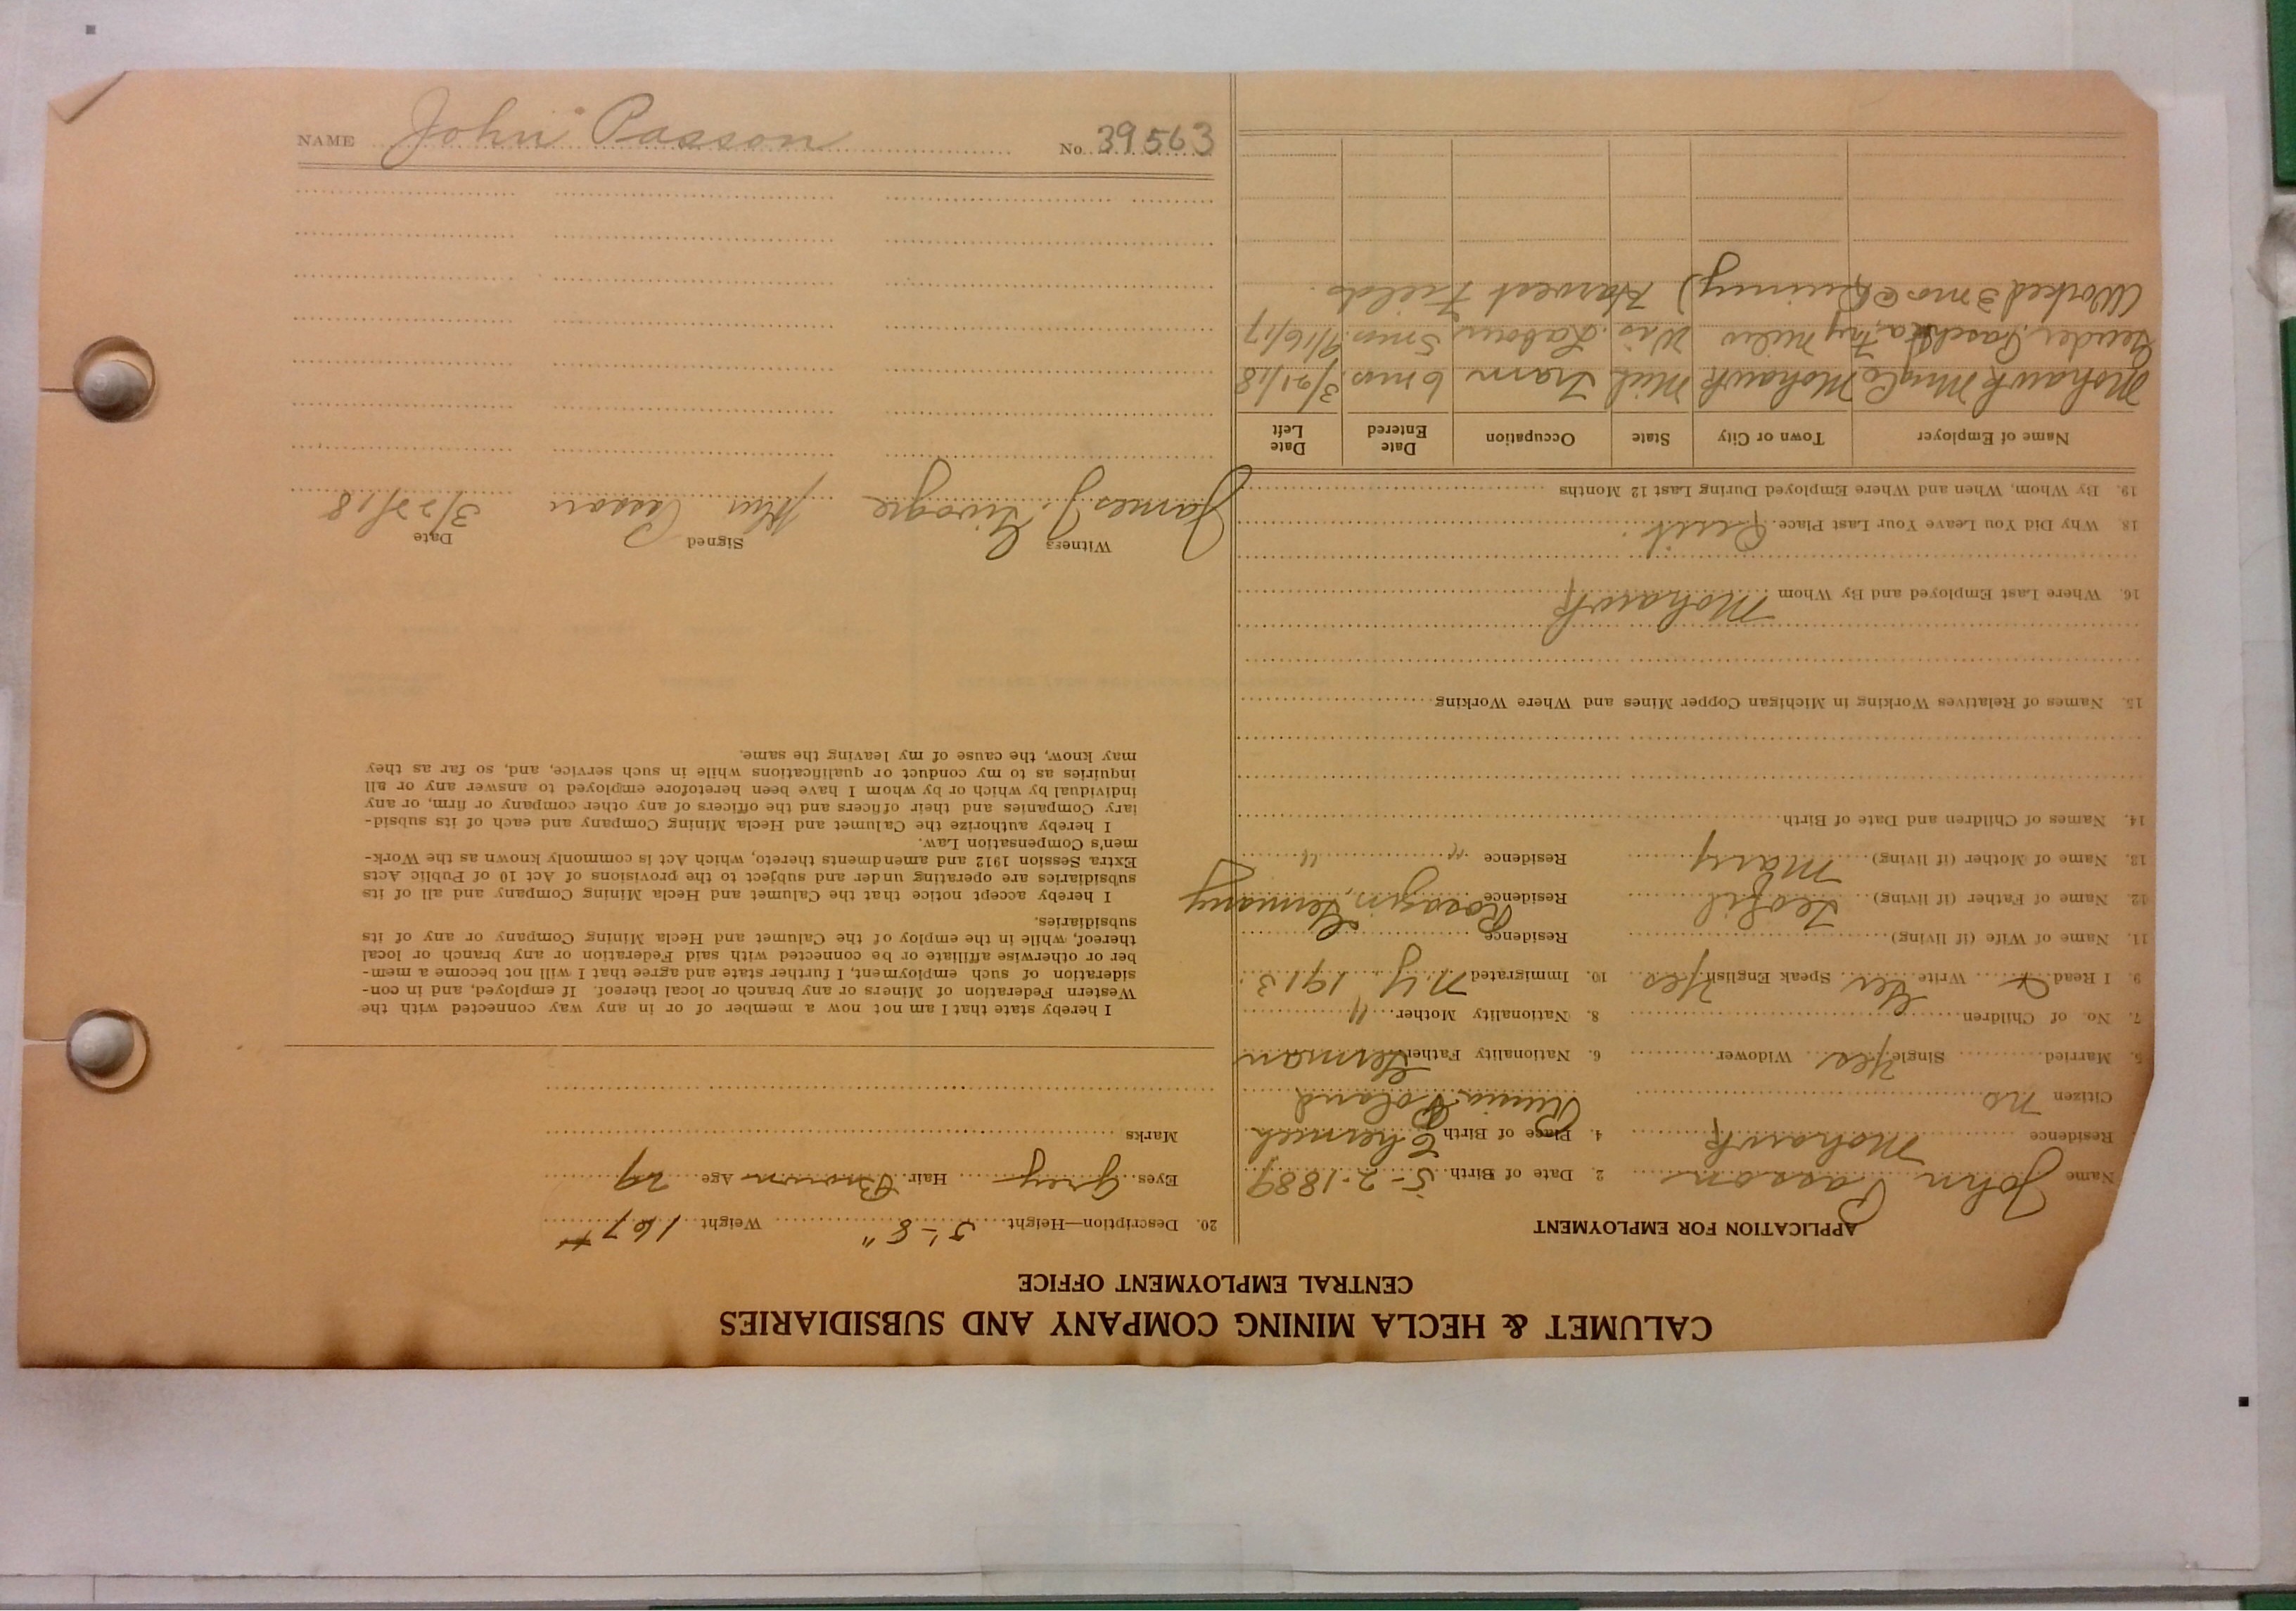 CALUMET & HECLA MINING COMPANY AND SUBSIDIARIES
CENTRAL EMPLOYMENT OFFICE
APPLICATION FOR EMPLOYMENT
Name John Passon 2. Date of Birth 5-2-1889
Residence Mohawk 4. Place of Birth Chernieh
Citizen no Russia Poland
5. Married Single Yes Widower 6. Nationality Father German
7. No. of Children 8. Nationality Mother "
9. I Read Write Yes Speak English Yes 10. Immigrated N Y 1913
11. Name of Wife (if living) Residence
12. Name of Father (if living) Teofil Residence Germany
13. Name of Mother (if living) Mary Residence " "
14. Names of Children and Date of Birth
15. Names of Relatives Working in Michigan Copper Mines and Where Working
16. Where Last Employed and By Whom Mohawk
18. Why Did You Leave Your Last Place Quit.
19. By Whom, When and Where Employed During Last 12 Months
Name of Employer Town or City State Occupation Date Entered Date Left
Mohawk Mng Co Mohawk Mich Tram 6 mos. 3/21/18
Wis. Labour 5 mos. 9/16/17
Worked 3 mos Harvest Fields.
20. Description—Height 5'-8" Weight 167 #
Eyes Grey Hair Brown Age 29
Marks
I hereby state that I am not now a member of or in any way connected with the
Western Federation of Miners or any branch or local thereof. If employed, and in con-
sideration of such employment, I further state and agree that I will not become a mem-
ber or otherwise affiliate or be connected with said Federation or any branch or local
thereof, while in the employ of the Calumet and Hecla Mining Company or any of its
subsidiaries.
I hereby accept notice that the Calumet and Hecla Mining Company and all of its
subsidiaries are operating under and subject to the provisions of Act 10 of Public Acts
Extra Session 1912 and amendments thereto, which Act is commonly known as the Work-
men's Compensation Law.
I hereby authorize the Calumet and Hecla Mining Company and each of its subsid-
iary Companies and their officers and the officers of any other company or firm, or any
individual by which or by whom I have been heretofore employed to answer any or all
inquiries as to my conduct or qualifications while in such service, and, so far as they
may know, the cause of my leaving the same.
Witness Signed Date
James J. John Passon 3/22/18
NAME John Passon No. 39563